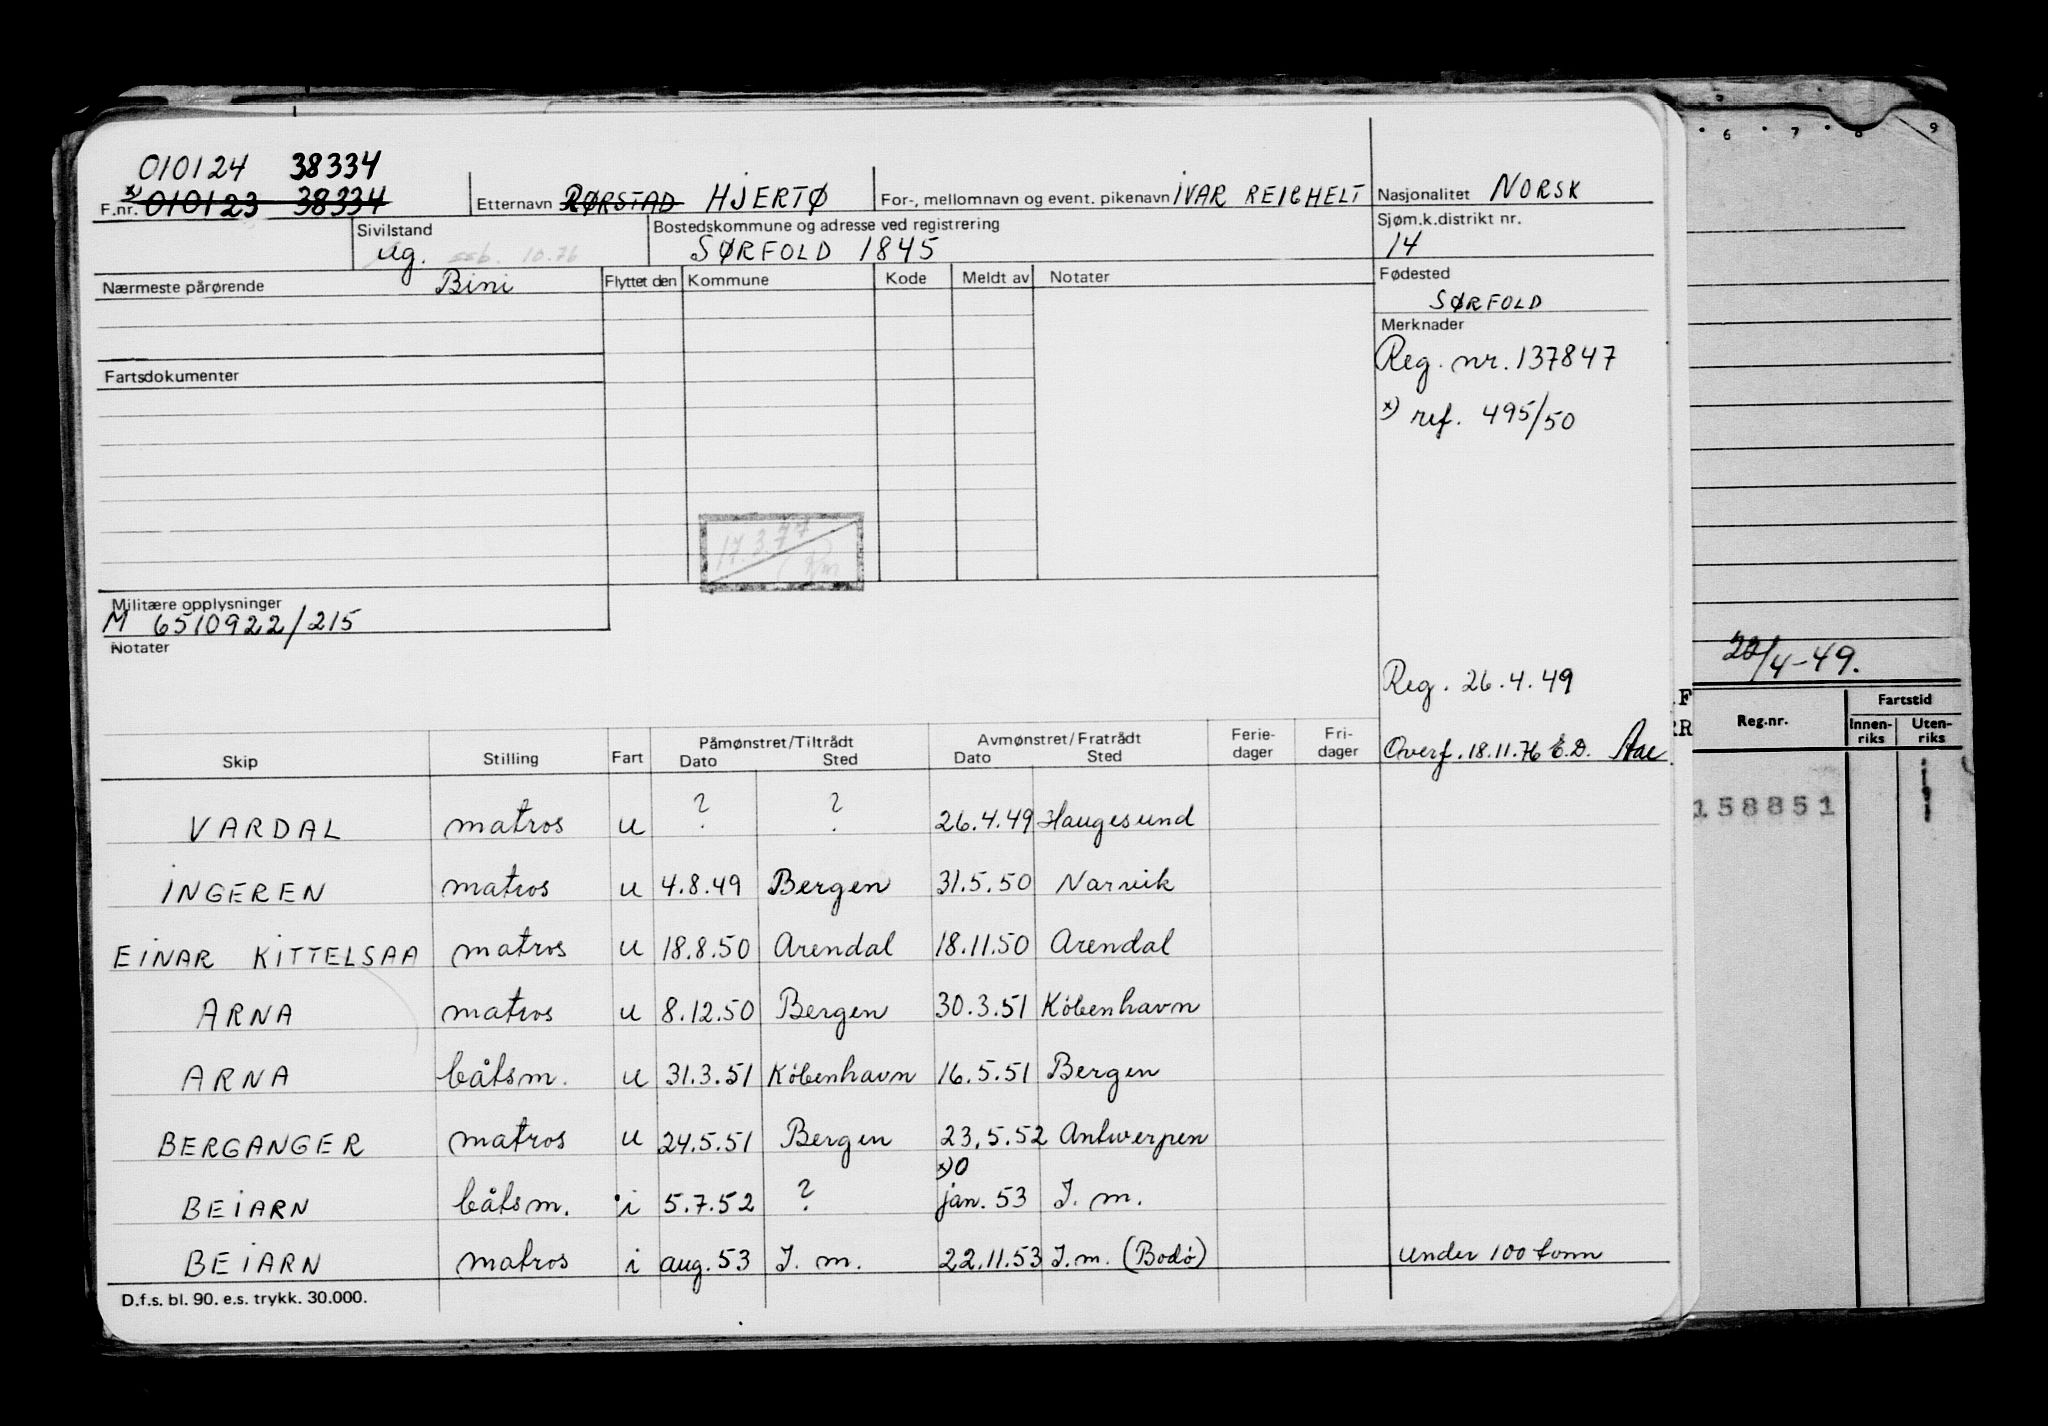 010124 38334
F.nr. x) 010123 38334
Etternavn RØRSTAD HJERTØ
For-, mellomnavn og event. pikenavn IVAR REICHELT
Nasjonalitet NORSK
Sivilstand
ug. ssb. 10.76
Bostedskommune og adresse ved registrering
SØRFOLD 1845
Sjøm.k.distrikt nr.
14
Nærmeste pårørende Bini
Flyttet den Kommune Kode Meldt av Notater
Fødested
SØRFOLD
Merknader
Reg. nr. 137847
x) ref. 495/50
Fartsdokumenter
17.3.77
Militære opplysninger
M 6510922/215
Notater
Reg. 26.4.49
Overf. 18.11.76 E.D. Aae
Skip Stilling Fart Påmønstret/Tiltrådt Dato Sted Avmønstret/Fratrådt Dato Sted Ferie-dager Fri-dager
VARDAL matros u ? ? 26.4.49 Haugesund
INGEREN matros u 4.8.49 Bergen 31.5.50 Narvik
EINAR KITTELSAA matros u 18.8.50 Arendal 18.11.50 Arendal
ARNA matros u 8.12.50 Bergen 30.3.51 København
ARNA båtsm. u 31.3.51 København 16.5.51 Bergen
BERGANGER matros u 24.5.51 Bergen 23.5.52 Antwerpen
x) 0
BEIARN båtsm. i 5.7.52 ? jan. 53 I. m.
BEIARN matros i aug. 53 I. m. 22.11.53 I.m. (Bodø) under 100 tonn
D.f.s. bl. 90. e.s. trykk. 30.000.
6 7 8 9
22/4-49.
F
RR
Reg.nr.
Fartstid
Innen-riks
Uten-riks
158851